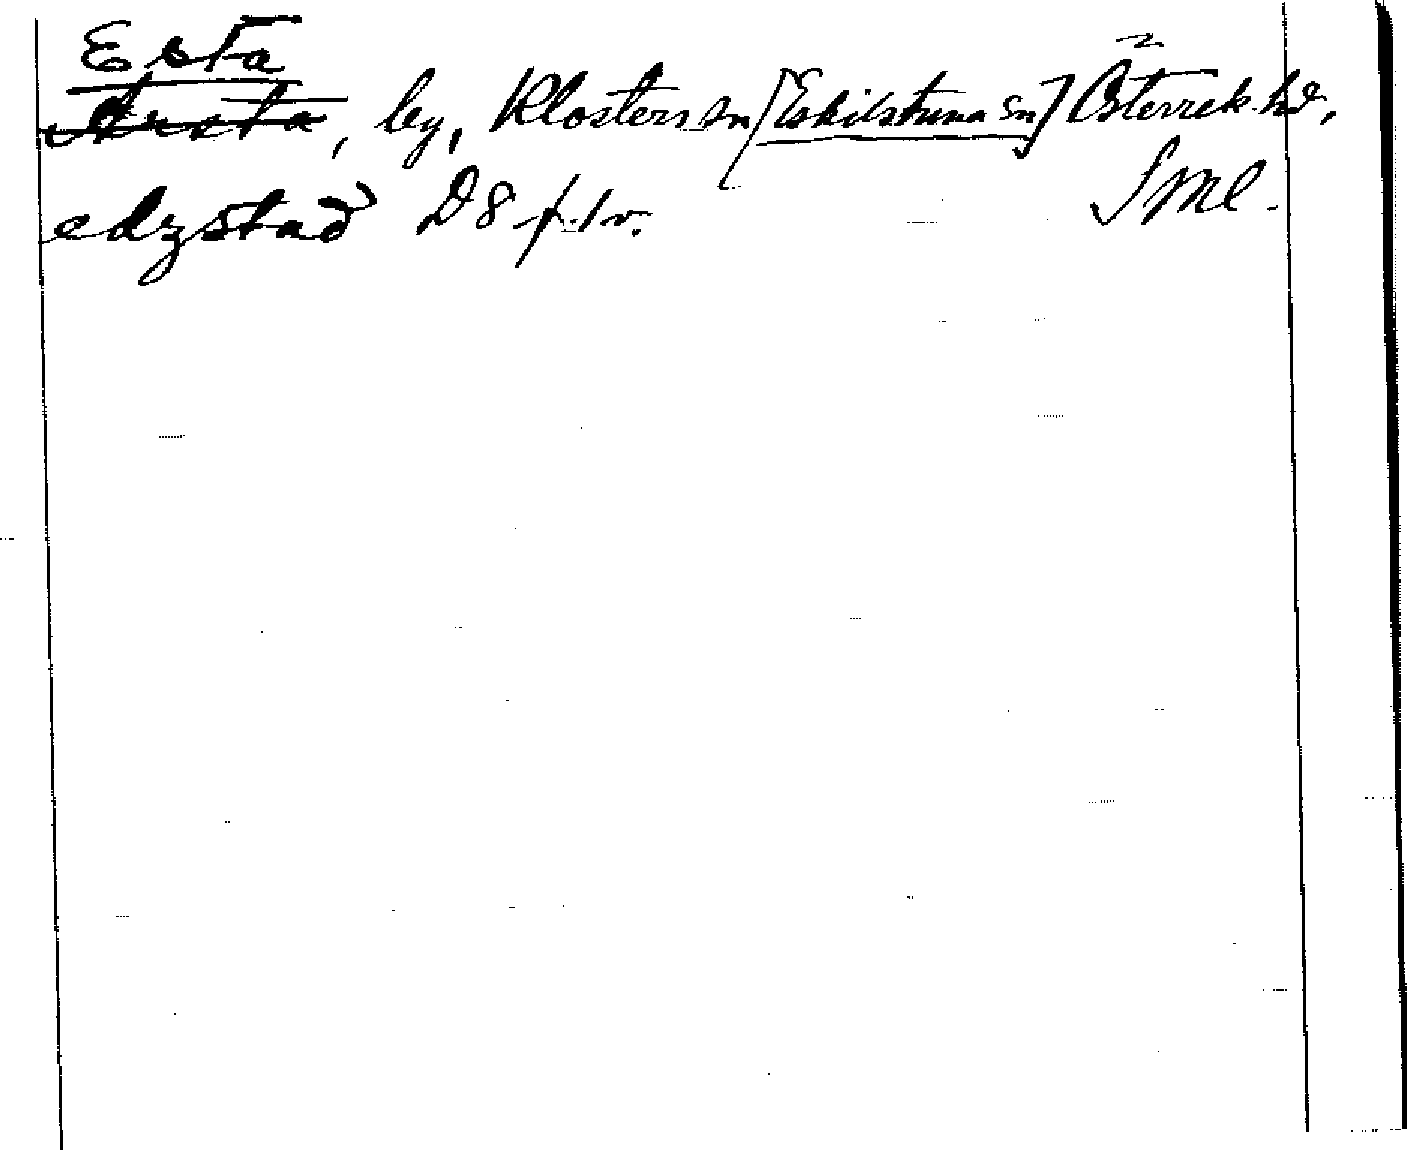 Esta
Arsta, by, Klosters sn [Eskilstuna sn] Österrek. hd,
edzstad D8 f. 1v. Sml.